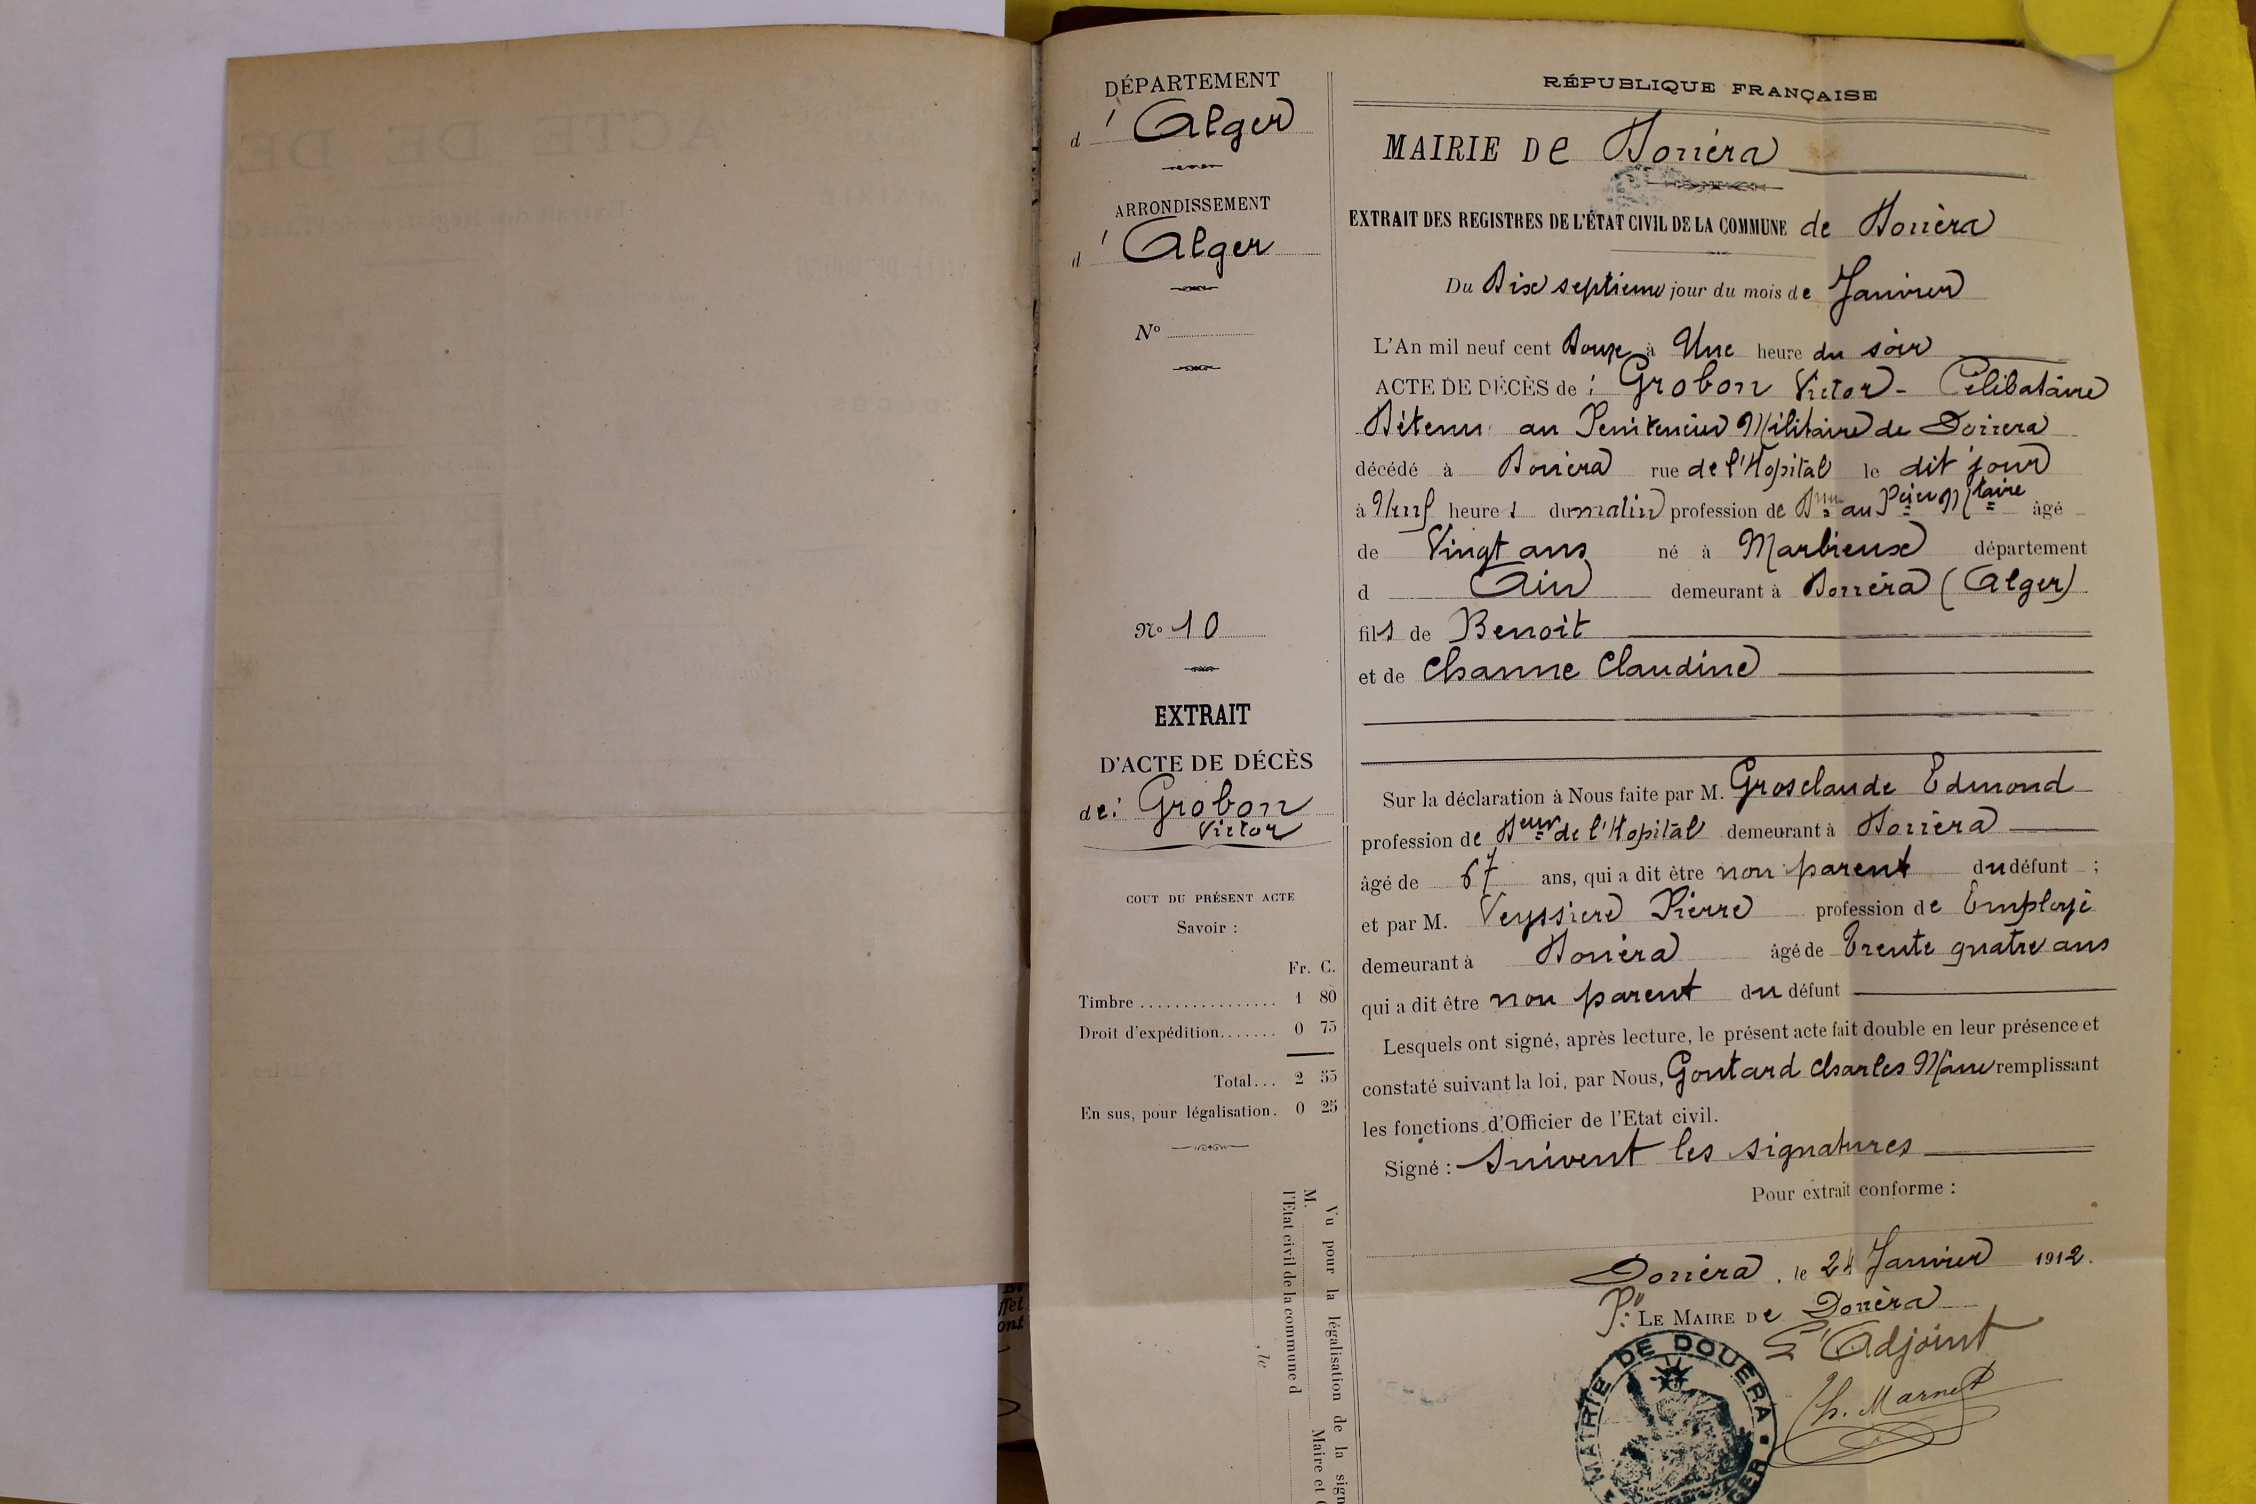 DÉPARTEMENT
d'Alger
ARRONDISSEMENT
d'Alger
No
No 10
EXTRAIT
D'ACTE DE DÉCÈS
de : Grobon
Victor
COUT DU PRÉSENT ACTE
Savoir :
Fr. C.
Timbre ................ 1 80
Droit d'expédition....... 0 75
Total... 2 55
En sus, pour légalisation. 0 25
Vu pour la légalisation de la sign
M.
Maire et
l'Etat civil de la commune d
, le
RÉPUBLIQUE FRANÇAISE
MAIRIE De Douéra
EXTRAIT DES REGISTRES DE L'ÉTAT CIVIL DE LA COMMUNE de Douèra
Du Dix septieme jour du mois de Janvier
L'An mil neuf cent Douze à Une heure du soir
ACTE DE DÉCÈS de : Grobon Victor - Célibataire
Détenu au Penitencier Militaire de Douera
décédé à Douéra rue de l'Hopital le dit jour
à Neuf heures du matin profession de Dnu au Pcier Mtaire âgé
de Vingt ans né à Marlieux département
d Ain demeurant à Douéra (Alger)
fils de Benoit
et de Channe Claudine
Sur la déclaration à Nous faite par M. Grosclaude Edmond
profession de Deur de l'Hopital demeurant à Douéra
âgé de 67 ans, qui a dit être non parent du défunt ;
et par M. Veyssiere Pierre profession de Employé
demeurant à Douéra âgé de Trente quatre ans
qui a dit être non parent du défunt
Lesquels ont signé, après lecture, le présent acte fait double en leur présence et
constaté suivant la loi, par Nous, Goutard Charles Maire remplissant
les fonctions d'Officier de l'Etat civil.
Signé : Suivent les signatures
Pour extrait conforme :
Douéra, le 24 Janvier 1912.
Pr LE MAIRE De Douèra
L'Adjoint
Ch. Marnet
MAIRIE DE DOUERA